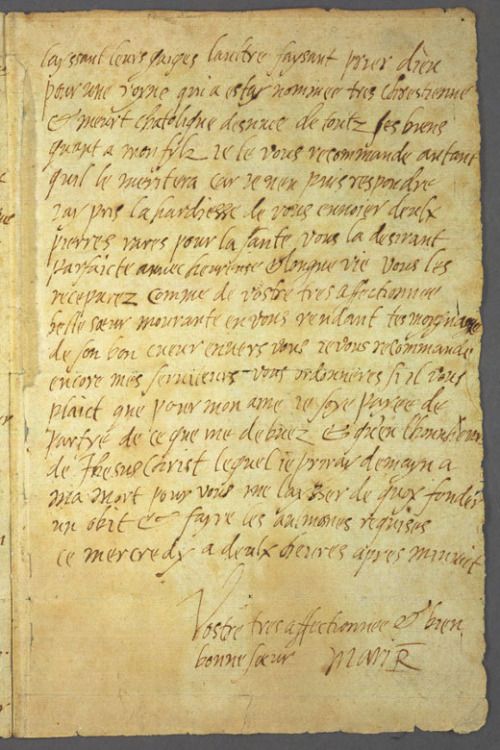 layssant leurs gaiges laultre faysant prier dieu
pour une royne qui a estay nommee tres chrestienne
& meurt chatolique desnuee de toutz ses biens
quant a mon fylz ie le vous recommande autant
quil le meritera car ie nen puis respondre
Iay pris la hardiesse de vous envoier deulx
pierres rares pour la sante vous la desirant
parfaicte avvec heureuse & longue vie vous les
recepvrez comme de vostre tres affectionnee
belle sœur mourante en vous rendant tesmoygnage
de son bon cueur envers vous ie vous recommande
encore mes serviteurs vous ordonneres si il vous
plaict que pour mon ame ie soye payee de
partye de ce que me debvez & quen lhonneur
de Jhesus Christ lequel ie priray demayn a
ma mort pour vous me laisser de quoy fonder
un obit & fayre les aulmones requises
ce mercredy a deulx heures apres minuict
Vostre tres affectionnee & bien
bonne sœur Mari R